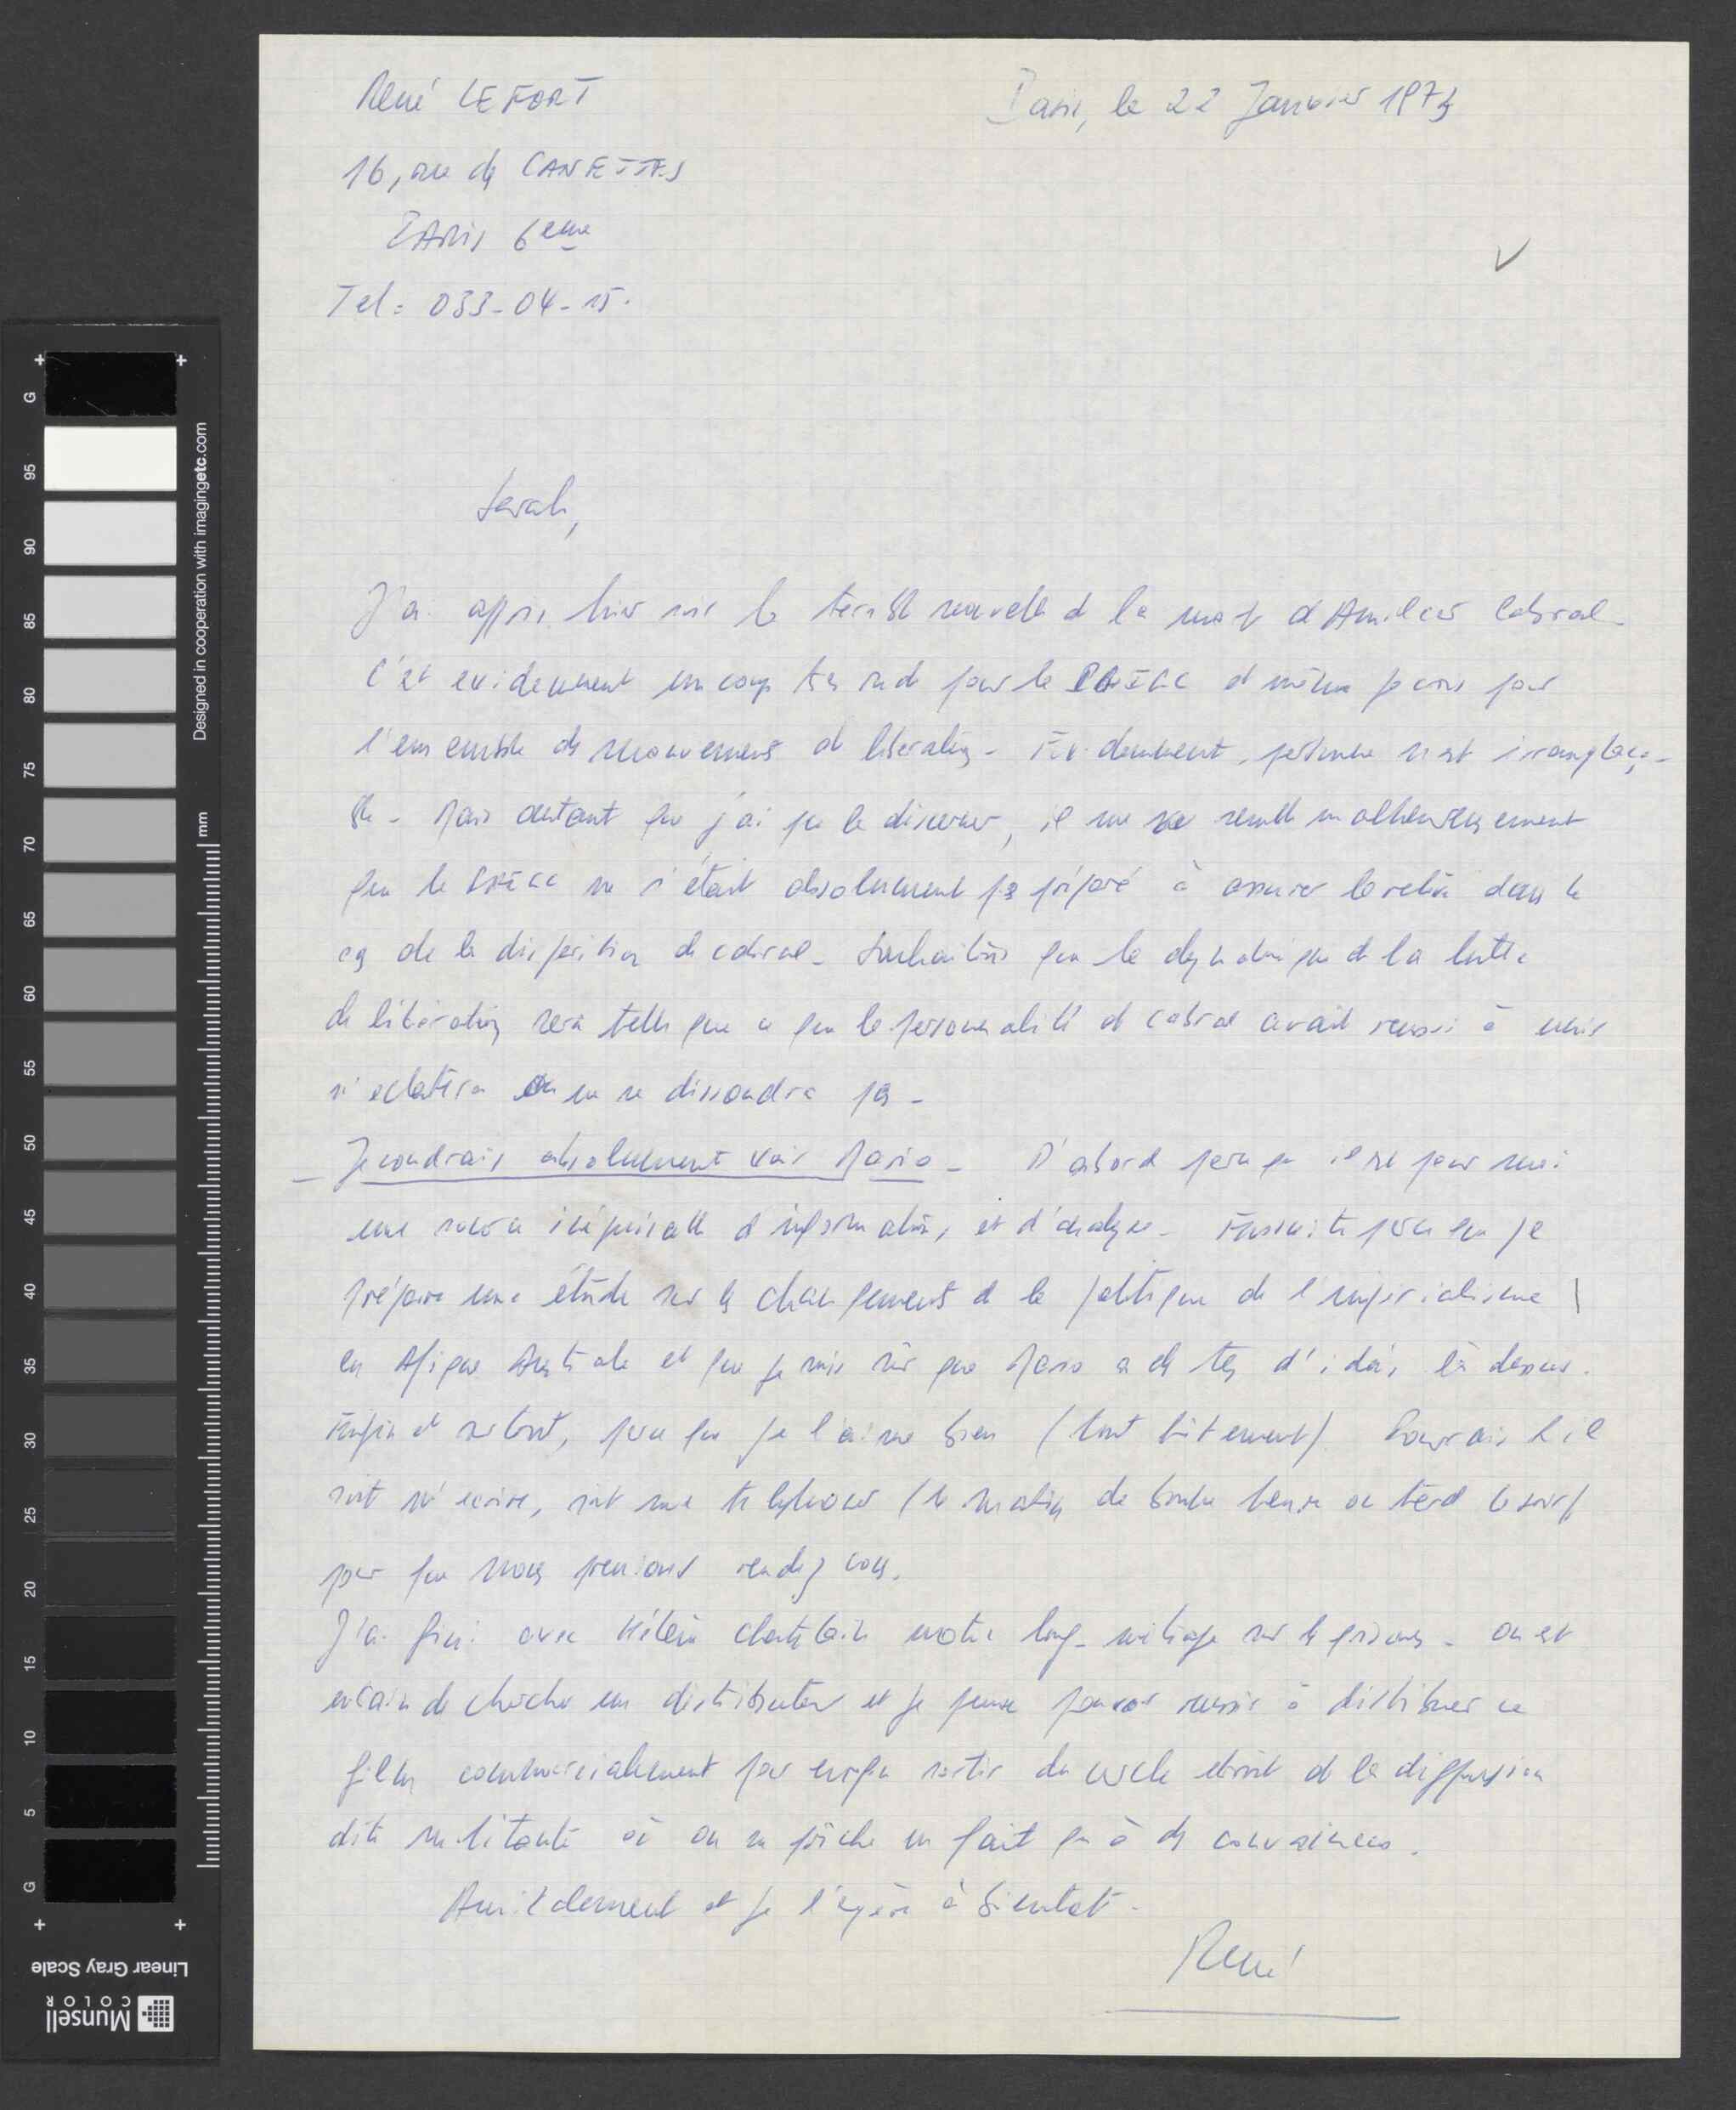 René LEFORT
Paris, le 22 Janvier 1973
16, rue des CANETTES
PARIS 6eme
Tel : 033-04-15.
Sarah,
J'ai appris hier soir la terrible nouvelle de la mort d'Amilcar Cabral.
C'est evidemment un coup très rude pour le PAIGC et même je crois pour
l'ensemble des mouvements de libération - Evidemment, personne n'est irremplaça-
ble - Mais autant que j'ai pu le discerner, il me semble malheureusement
que le PAIGC ne s'était absolument pas préparé à assurer la relève dans le
cas de la disparition de Cabral - Souhaitons que la dynamique de la lutte
de libération sera telle que ce que la personnalité de Cabral avait reussi à unir
n'eclatera ou ne se dissoudra pas -
- Je voudrais absolument voir Mario - D'abord parce qu'il est pour moi
une source inépuisable d'informations et d'analyse - Ensuite parce que je
prépare une étude sur les changements de la politique de l'impérialisme
en Afrique Australe et que je suis sûr que Mario a des tas d'idées là dessus.
Enfin et surtout, parce que je l'aime bien (tout bêtement). Pourrais t'il
soit m'ecrire, soit me telephoner (le matin de bonne heure ou tard le soir)
pour que nous prenions rendez vous.
J'ai fini avec Hélène Chatelain notre long-métrage sur les prisons - on est
en train de chercher un distributeur et je pense pouvoir reussir à distribuer ce
film commercialement pour enfin sortir du cercle étroit de la diffusion
dite militante où on ne prêche en fait qu'à des convaincus.
Amicalement et je l'espère à bientot -
René
Designed in cooperation with imagingetc.com
mm
G
95
90
85
80
75
70
65
60
55
50
45
40
35
30
25
20
15
10
5
G
Linear Gray Scale
Munsell
COLOR